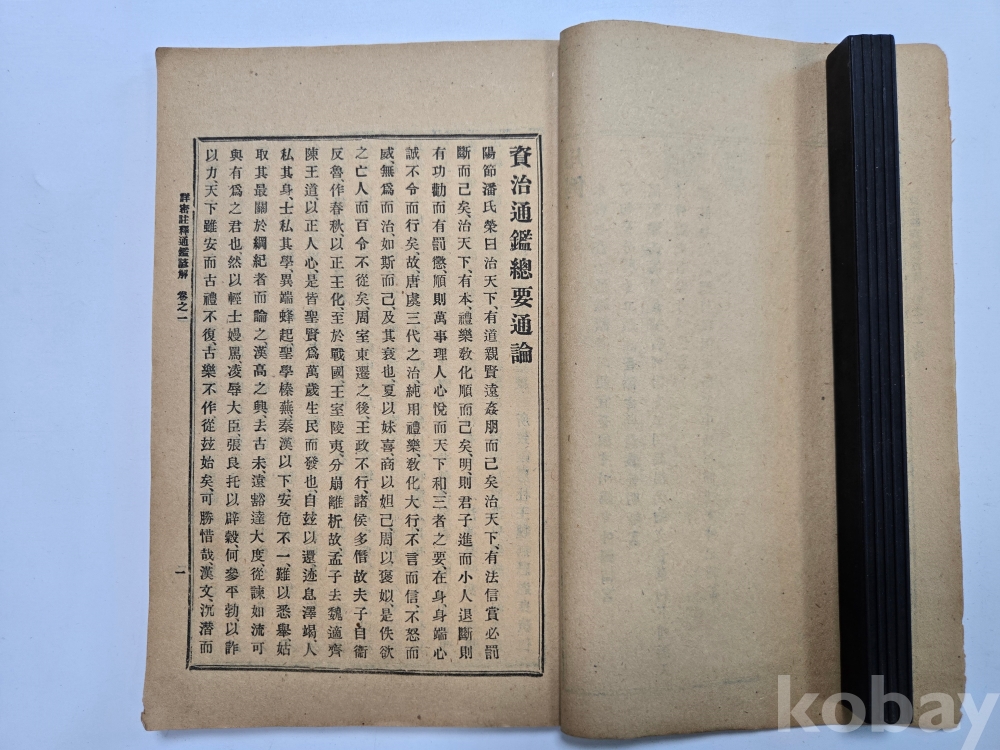 資治通鑑總要通論
陽節潘氏榮曰治天下、有道親賢遠姦朋而己矣治天下、有法信賞必罰
斷而己矣、治天下、有本、禮樂敎化順而己矣、明、則君子進而小人退斷則
有功勸而有罰懲、順則萬事理人心悅而天下和、三者之要、在身、身端心
誠不令而行矣故、唐虞三代之治純用禮樂、敎化大行、不言而信、不怒而
威、無爲而治、如斯而己、及其衰也、夏以妹喜、商以妲己、周以褒姒、是佚欲
之亡人而百令不從矣、周室東遷之後、王政不行、諸侯多僭故夫子自衞
反魯、作春秋、以正王化、至於戰國、王室陵夷、分崩離析故、孟子去魏適齊
陳王道、以正人心、是皆聖賢爲萬歲生民而發也、自玆以還、迹息澤竭人
私其身、士私其學、異端蜂起、聖學榛蕪、秦漢以下、安危不一、難以悉擧姑
取其最關於綱紀者而論之、漢高之興、去古未遠豁達大度、從諫如流可
與有爲之君也、然以輕士嫚罵、凌辱大臣、張良托以辟穀、何參平勃、以詐
以力、天下雖安而古禮不復、古樂不作從玆始矣、可勝惜哉、漢文沉潛而
詳密註釋通鑑諺解 卷之一
一
kobay